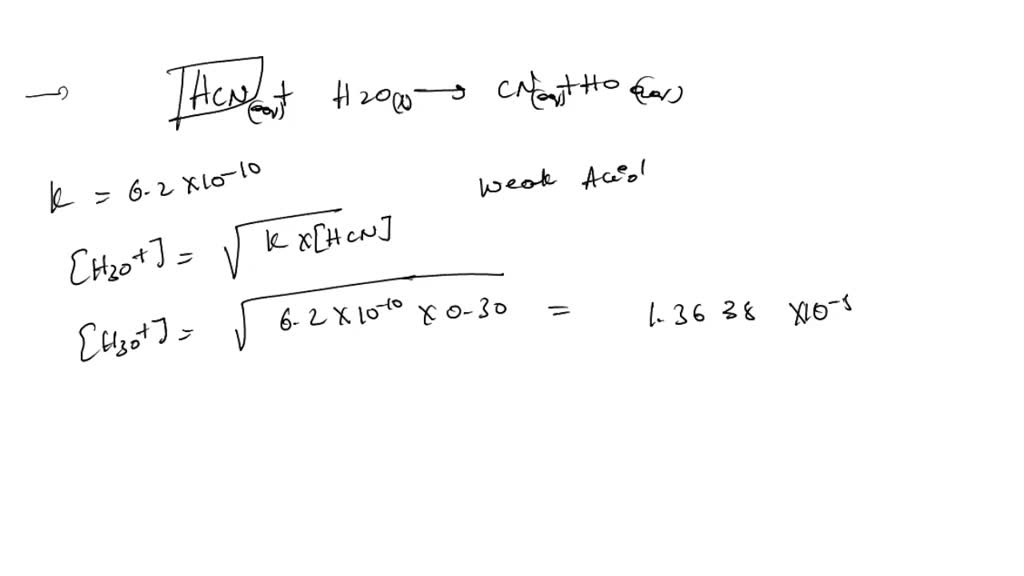 → HCN(aq) + H2O(l) → CN(aq) + HO (aq)
K = 6.2 X10-10 weak Acid
[H30+] = √K X[HCN]
[H30+] = √6.2 X 10-10 X 0.30 = 1.36 38 X10-5